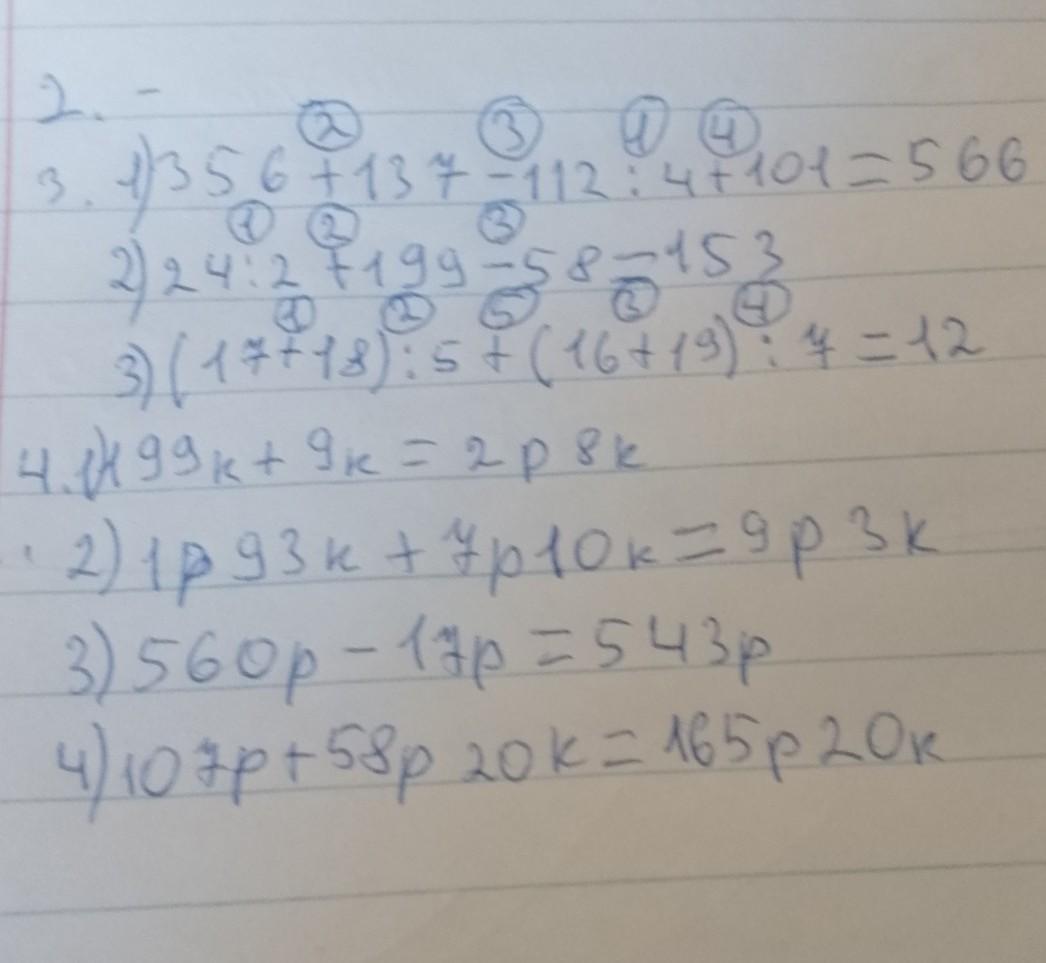 2. -
② ③ ① ④
3. 1) 356 + 137 - 112 : 4 + 101 = 566
① ② ③
2) 24 : 2 + 199 - 58 = 153
① ② ⑤ ③ ④
3) (17 + 18) : 5 + (16 + 19) : 7 = 12
4. 1) 199к + 9к = 2р 8к
2) 1р 93к + 7р 10к = 9р 3к
3) 560р - 17р = 543р
4) 107р + 58р 20к = 165р 20к